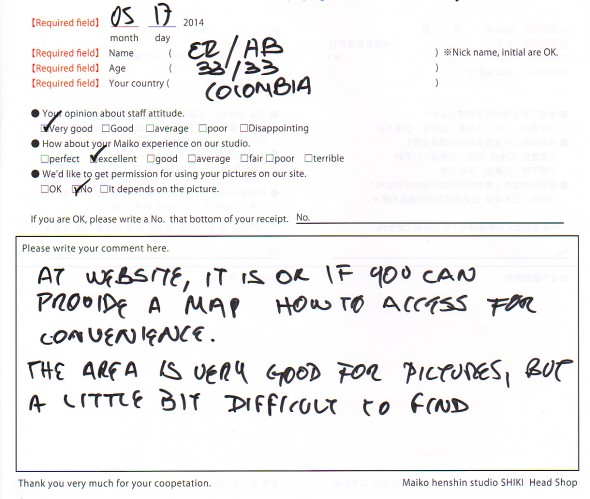 【Required field】 05 17 2014
month day
【Required field】 Name ( ER / AB ) ※Nick name, initial are OK.
【Required field】 Age ( 33 / 33 )
【Required field】 Your country ( COLOMBIA )
● Your opinion about staff attitude.
☑Very good □Good □average □poor □Disappointing
● How about your Maiko experience on our studio.
□perfect ☑excellent □good □average □fair □poor □terrible
● We'd like to get permission for using your pictures on our site.
□OK ☑No □It depends on the picture.
If you are OK, please write a No. that bottom of your receipt. No.
Please write your comment here.
AT WEBSITE, IT IS OR IF YOU CAN
PROVIDE A MAP HOW TO ACCESS FOR
CONVENIENCE.
THE AREA IS VERY GOOD FOR PICTURES, BUT
A LITTLE BIT DIFFICULT TO FIND
Thank you very much for your coopetation. Maiko henshin studio SHIKI Head Shop